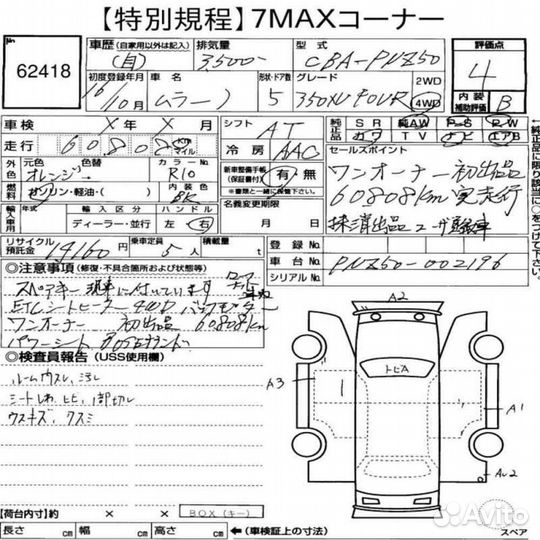 【特別規程】7MAXコーナー
No
62418
車歴(自家用以外は記入)
(自)
排気量
3500
型式
CBA-PNZ50
評価点
4
初度登録年月
16/10月
車名
ムラーノ
形状・ドア数
5
グレード
350XV FOUR
2WD
4WD
内装補助評価
B
車検
X年X月
シフト
AT
純正品
SR
純AW
P-S
P-W
カワ
TV
ナビ
エアB
走行
60808
Km
マイル
冷房
AAC
セールスポイント
ワンオーナー初出品
60808km実走行
外色
元色
オレンジ
色替
カラーNo.
R10
新車整備手帳(保証書付)
有・無
燃料
ガソリン・軽油・( )
内装色
BK
名義変更期限
月 日
輸入車用
年式
輸入区分
ディーラー・並行
ハンドル
左 右
リサイクル預託金
14160円
乗車定員
5人
積載量
t
登録No.
車台No.
PNZ50-002196
シリアルNo.
◎注意事項(修復・不具合箇所および状態等)
スペアキー
ETC シートヒーター 4WD バックモニター
ワンオーナー 初出品 60808km
パワーシート BOSEサウンド
◎検査員報告(USS使用欄)
ルームウスレ、汚れ
ウスキズ、
A2
トヒA
A3
A1
【荷台内寸】約
×
×
BOX(キー)
長さ cm
幅 cm
高さ cm
(車検証上の寸法)
スペア
Avito